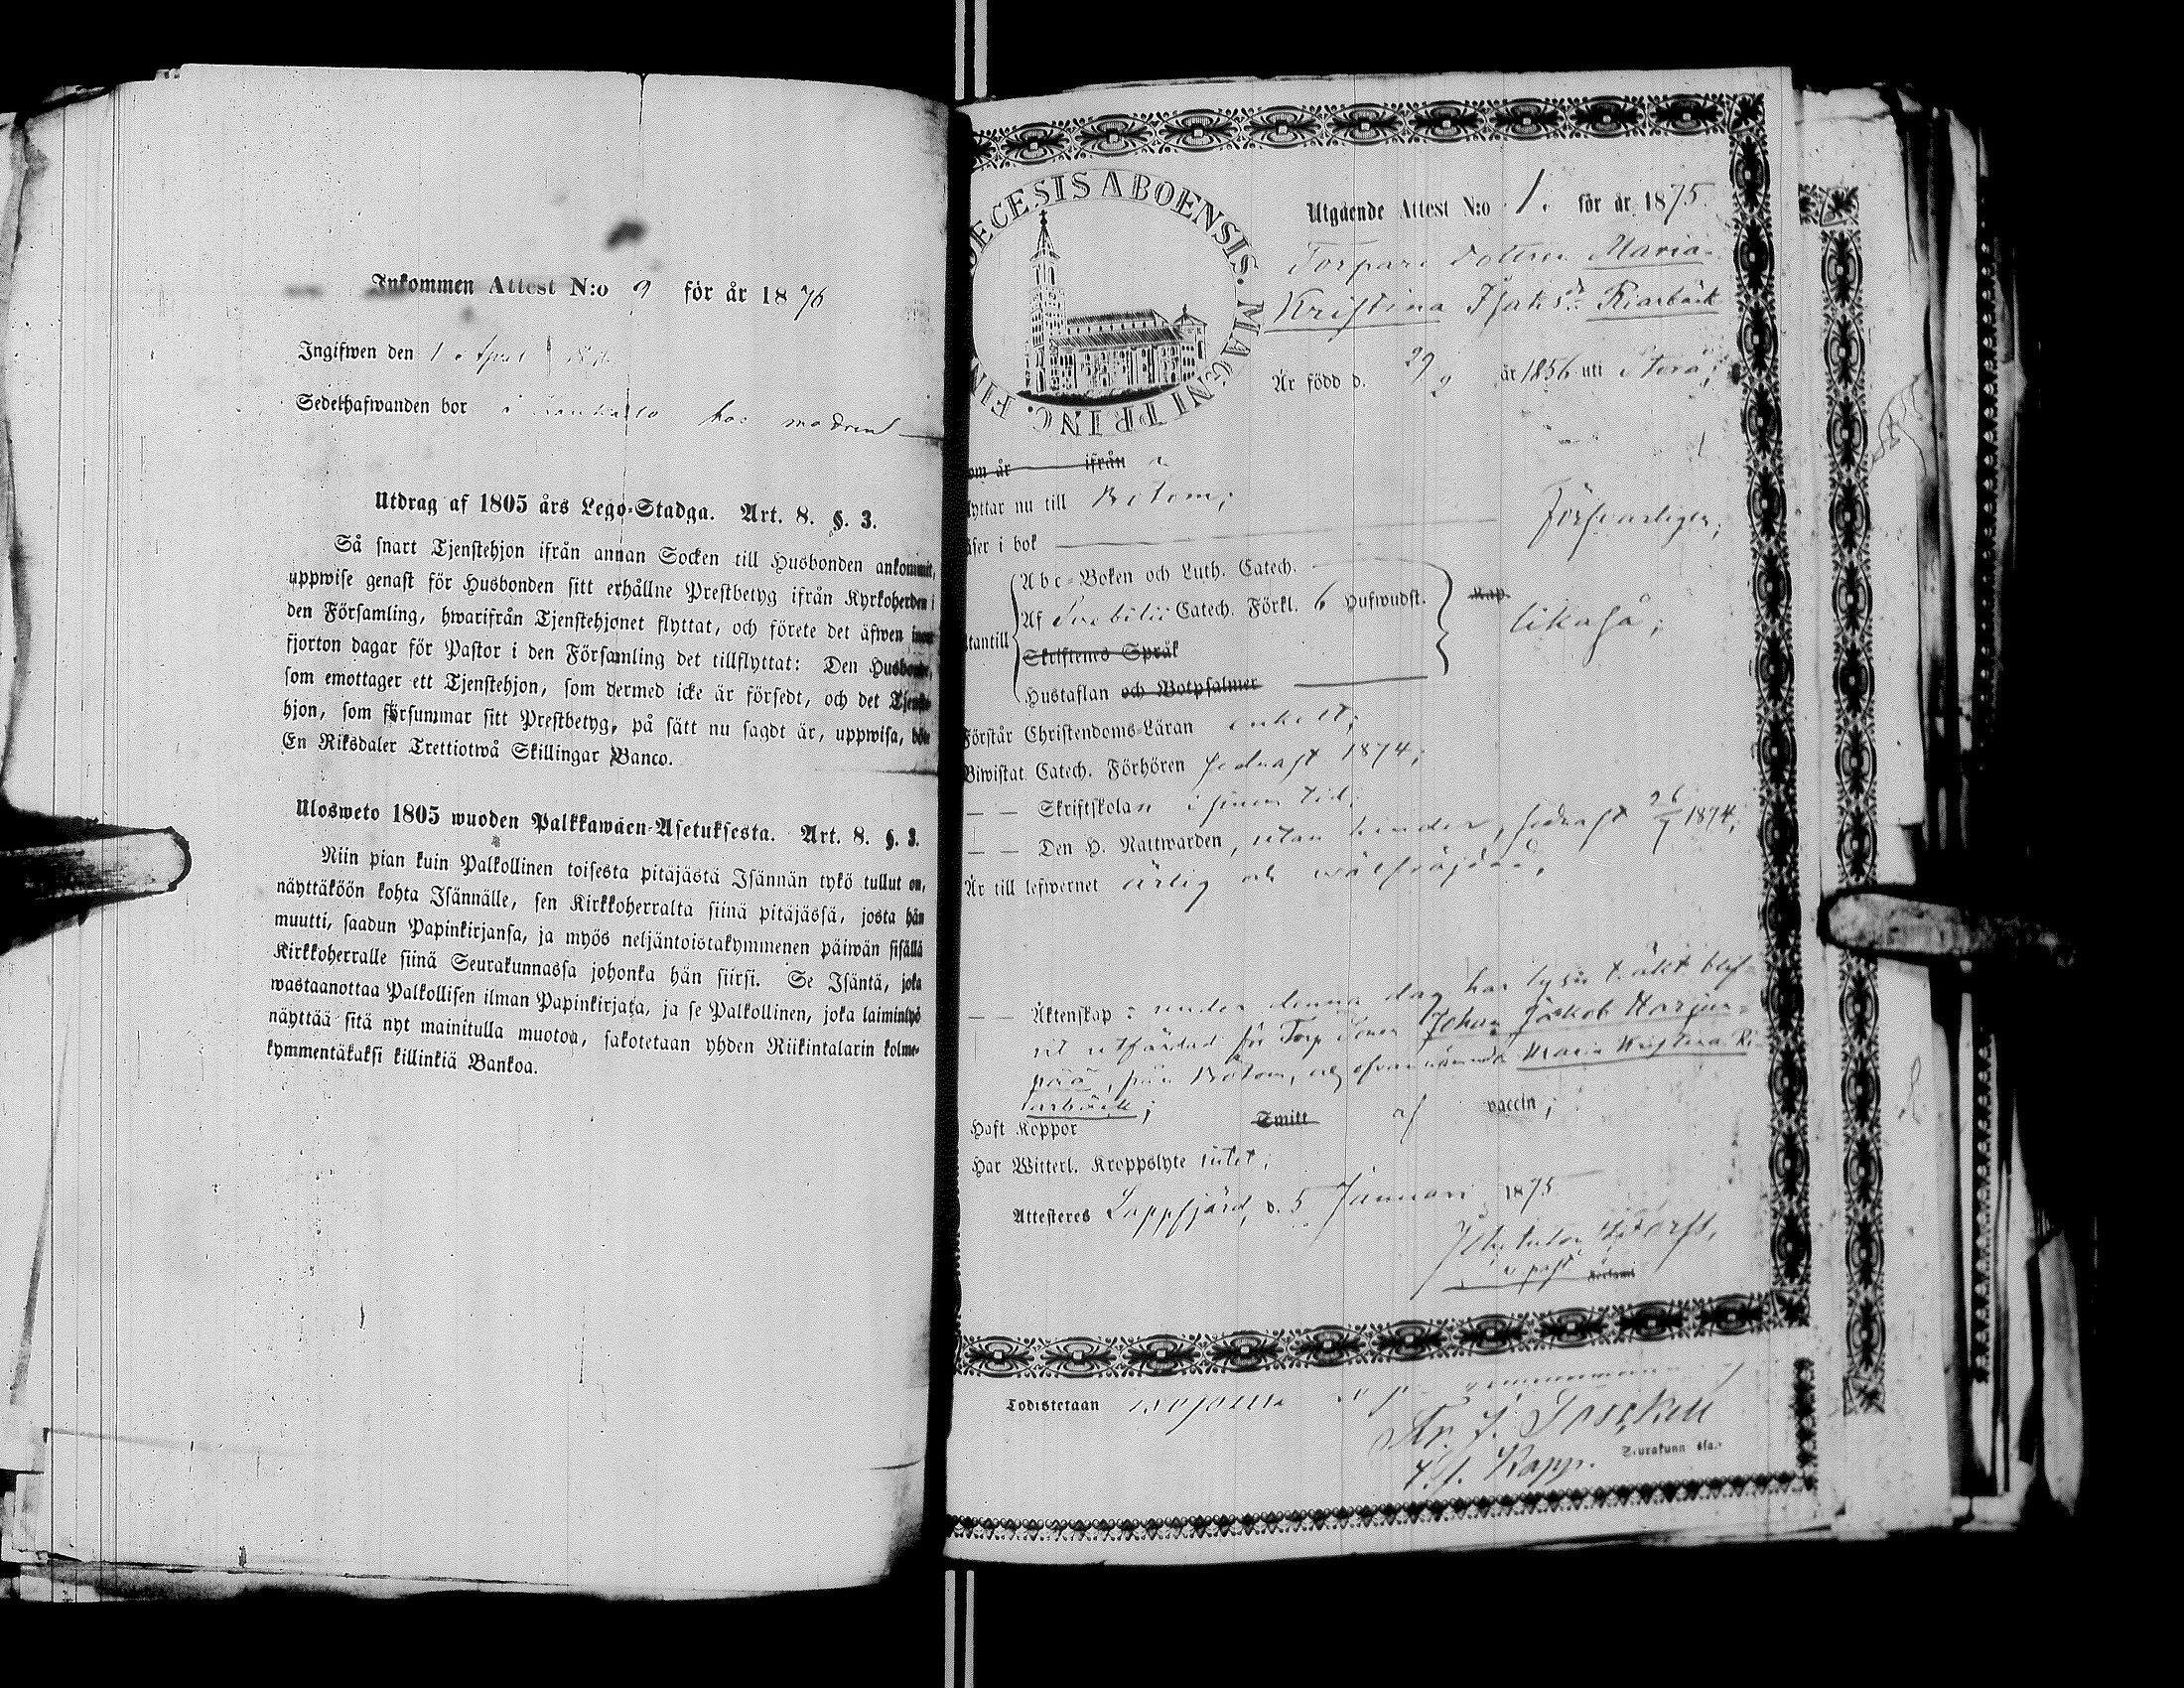 Inkommen Attest N:o 9 för år 1876
Ingifwen den 1 April 1876
Sedelhafwanden bor i hos modren
Utdrag af 1805 års Lego-Stadga. Art. 8. §. 3.
Så snart Tjenstehjon ifrån annan Socken till Husbonden ankommit,
uppwise genast för Husbonden sitt erhållne Prestbetyg ifrån Kyrkoherden i
den Församling, hwarifrån Tjenstehjonet flyttat, och förete det äfwen inom
fjorton dagar för Pastor i den Församling det tillflyttat: Den Husbonde,
som emottager ett Tjenstehjon, som dermed icke är försedt, och det Tjenste-
hjon, som försummar sitt Prestbetyg, på sätt nu sagdt är, uppwisa, böte
En Riksdaler Trettiotwå Skillingar Banco.
Ulosweto 1805 wuoden Palkkawäen-Asetuksesta. Art. 8. §. 3.
Niin pian kuin Palkollinen toisesta pitäjästä Isännän tykö tullut on,
näyttäköön kohta Isännälle, sen Kirkkoherralta siinä pitäjässä, josta hän
muutti, saadun Papinkirjansa, ja myös neljäntoistakymmenen päiwän sisällä
Kirkkoherralle siinä Seurakunnassa johonka hän siirsi. Se Isäntä, joka
wastaanottaa Palkollisen ilman Papinkirjata, ja se Palkollinen, joka laiminlyö
näyttää sitä nyt mainitulla muotoa, sakotetaan yhden Riikintalarin kolme-
kymmentäkaksi killinkiä Bankoa.
DECESIS ABOENSIS. MAGNI PRINC. FIN
Utgående Attest N:o 1. för år 1875.
Torpare dottren Maria
Kristina Isaksdr Riarbäck
Är född d. 29/9 år 1856 uti Storå;
om år ifrån
lyttar nu till Bötom;
äser i bok Försvarligen;
Abc-Boken och Luth. Catech.
Af Svebilii Catech. Förkl. 6 Hufwudst. Kap. likaså;
tantill
Skriftenes Språk
Hustaflan och Botpsalmer
Förstår Christendoms-Läran enkelt;
Biwistat Catech. Förhören sednast 1874;
— — Skriftskolan i sinom tid;
— — Den H. Nattwarden, utan hinder, sednast 26/7 1874;
Är till lefwernet ärlig och wälfräjdad,
— — Äktenskap: under denna dag har lysn. t. äkt. blif-
vit utfärdad för Torp. sonen Johan Jakob Harjun-
pää, från Bötom, och ofvannämnda Maria Kristina Ri-
arbäck;
Haft Koppor Smitt af vaccin;
Har Witterl. Kroppslyte intet;
Attesteres Lappfjärd, d. 5 Januari 1875
v. past. Församl
Todistetaan
Seurakunn